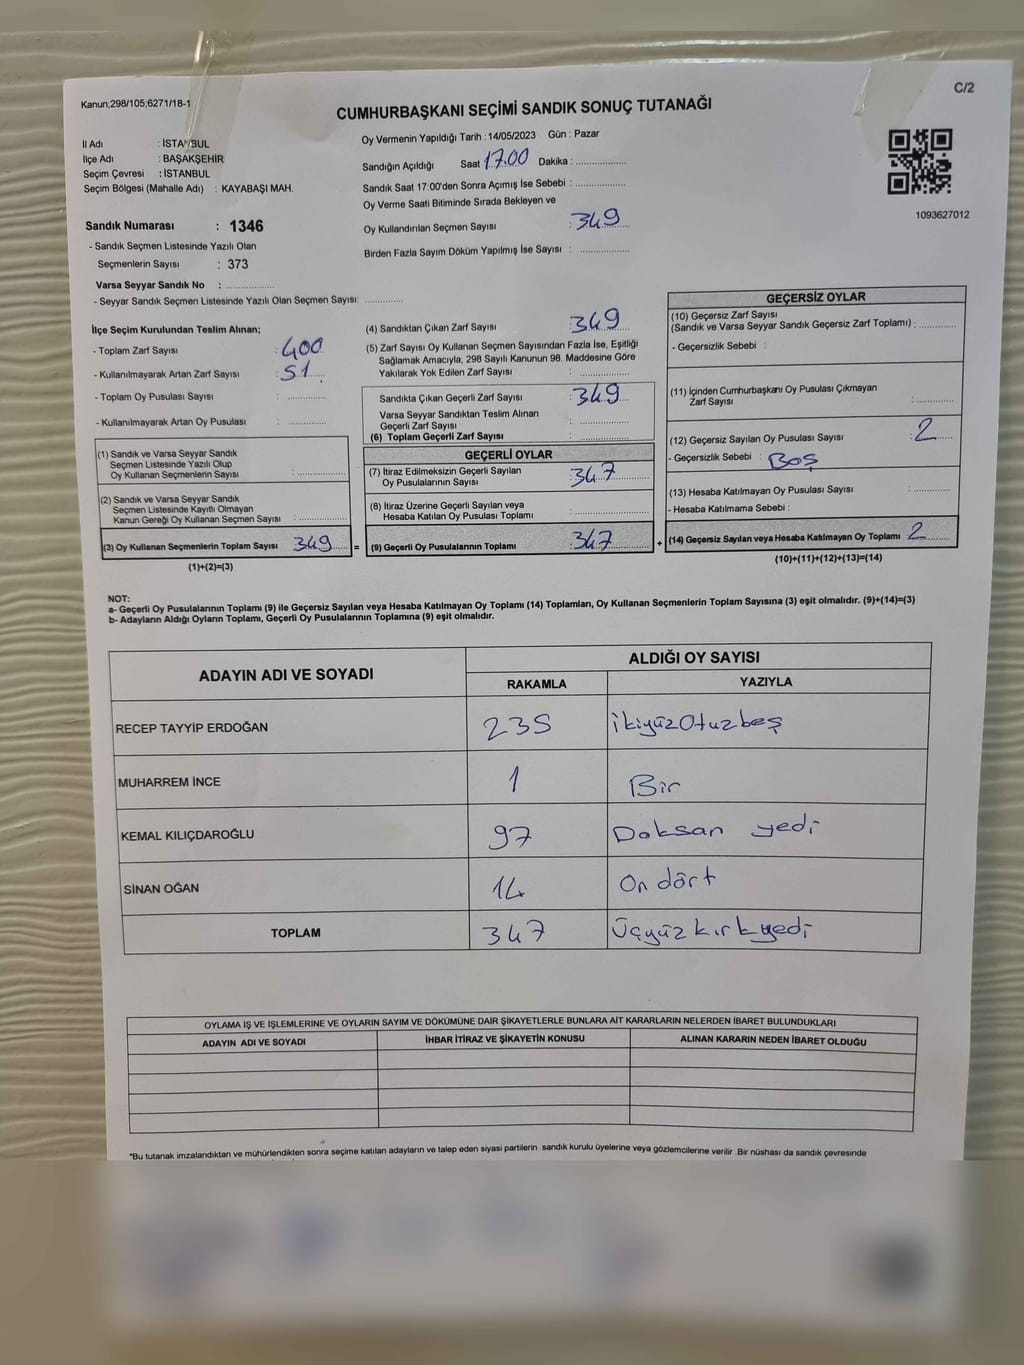 Kanun;298/105;6271/18-1
C/2
CUMHURBAŞKANI SEÇİMİ SANDIK SONUÇ TUTANAĞI
İl Adı : İSTANBUL
İlçe Adı : BAŞAKŞEHİR
Seçim Çevresi : İSTANBUL
Seçim Bölgesi (Mahalle Adı) : KAYABAŞI MAH.
Oy Vermenin Yapıldığı Tarih : 14/05/2023 Gün : Pazar
Sandığın Açıldığı Saat 17.00 Dakika : ..................
Sandık Saat 17:00'den Sonra Açımış İse Sebebi : ..................
Oy Verme Saati Bitiminde Sırada Bekleyen ve
Oy Kullandırılan Seçmen Sayısı : 349
Birden Fazla Sayım Döküm Yapılmış İse Sayısı : ..................
1093627012
Sandık Numarası : 1346
- Sandık Seçmen Listesinde Yazılı Olan
Seçmenlerin Sayısı : 373
Varsa Seyyar Sandık No : ..................
- Seyyar Sandık Seçmen Listesinde Yazılı Olan Seçmen Sayısı: ..............
İlçe Seçim Kurulundan Teslim Alınan;
- Toplam Zarf Sayısı : 400
- Kullanılmayarak Artan Zarf Sayısı : 51
- Toplam Oy Pusulası Sayısı : ..............
- Kullanılmayarak Artan Oy Pusulası : ..............
(1) Sandık ve Varsa Seyyar Sandık
Seçmen Listesinde Yazılı Olup
Oy Kullanan Seçmenlerin Sayısı : ..................
(2) Sandık ve Varsa Seyyar Sandık
Seçmen Listesinde Kayıtlı Olmayan
Kanun Gereği Oy Kullanan Seçmen Sayısı : ..................
(3) Oy Kullanan Seçmenlerin Toplam Sayısı 349 =
(1)+(2)=(3)
(4) Sandıktan Çıkan Zarf Sayısı 349
(5) Zarf Sayısı Oy Kullanan Seçmen Sayısından Fazla İse, Eşitliği
Sağlamak Amacıyla; 298 Sayılı Kanunun 98. Maddesine Göre
Yakılarak Yok Edilen Zarf Sayısı : ..................
Sandıkta Çıkan Geçerli Zarf Sayısı : 349
Varsa Seyyar Sandıktan Teslim Alınan
Geçerli Zarf Sayısı : ..................
(6) Toplam Geçerli Zarf Sayısı : ..................
GEÇERLİ OYLAR
(7) İtiraz Edilmeksizin Geçerli Sayılan
Oy Pusulalarının Sayısı : 347
(8) İtiraz Üzerine Geçerli Sayılan veya
Hesaba Katılan Oy Pusulası Toplamı : ..................
(9) Geçerli Oy Pusulalarının Toplamı : 347 +
GEÇERSİZ OYLAR
(10) Geçersiz Zarf Sayısı
(Sandık ve Varsa Seyyar Sandık Geçersiz Zarf Toplamı) : ..............
- Geçersizlik Sebebi :
(11) İçinden Cumhurbaşkanı Oy Pusulası Çıkmayan
Zarf Sayısı : ..............
(12) Geçersiz Sayılan Oy Pusulası Sayısı : 2
- Geçersizlik Sebebi : Boş
(13) Hesaba Katılmayan Oy Pusulası Sayısı : ..............
- Hesaba Katılmama Sebebi :
(14) Geçersiz Sayılan veya Hesaba Katılmayan Oy Toplamı 2
(10)+(11)+(12)+(13)=(14)
NOT:
a- Geçerli Oy Pusulalarının Toplamı (9) ile Geçersiz Sayılan veya Hesaba Katılmayan Oy Toplamı (14) Toplamları, Oy Kullanan Seçmenlerin Toplam Sayısına (3) eşit olmalıdır. (9)+(14)=(3)
b- Adayların Aldığı Oyların Toplamı, Geçerli Oy Pusulalarının Toplamına (9) eşit olmalıdır.
ADAYIN ADI VE SOYADI
ALDIĞI OY SAYISI
RAKAMLA YAZIYLA
RECEP TAYYİP ERDOĞAN 235 ikiyüzOtuzbeş
MUHARREM İNCE 1 Bir
KEMAL KILIÇDAROĞLU 97 Doksan yedi
SİNAN OĞAN 14 On dört
TOPLAM 347 Üçyüz kırkyedi
OYLAMA İŞ VE İŞLEMLERİNE VE OYLARIN SAYIM VE DÖKÜMÜNE DAİR ŞİKAYETLERLE BUNLARA AİT KARARLARIN NELERDEN İBARET BULUNDUKLARI
ADAYIN ADI VE SOYADI İHBAR İTİRAZ VE ŞİKAYETİN KONUSU ALINAN KARARIN NEDEN İBARET OLDUĞU
*Bu tutanak imzalandıktan ve mühürlendikten sonra seçime katılan adayların ve talep eden siyasi partilerin sandık kurulu üyelerine veya gözlemcilerine verilir .Bir nüshası da sandık çevresinde